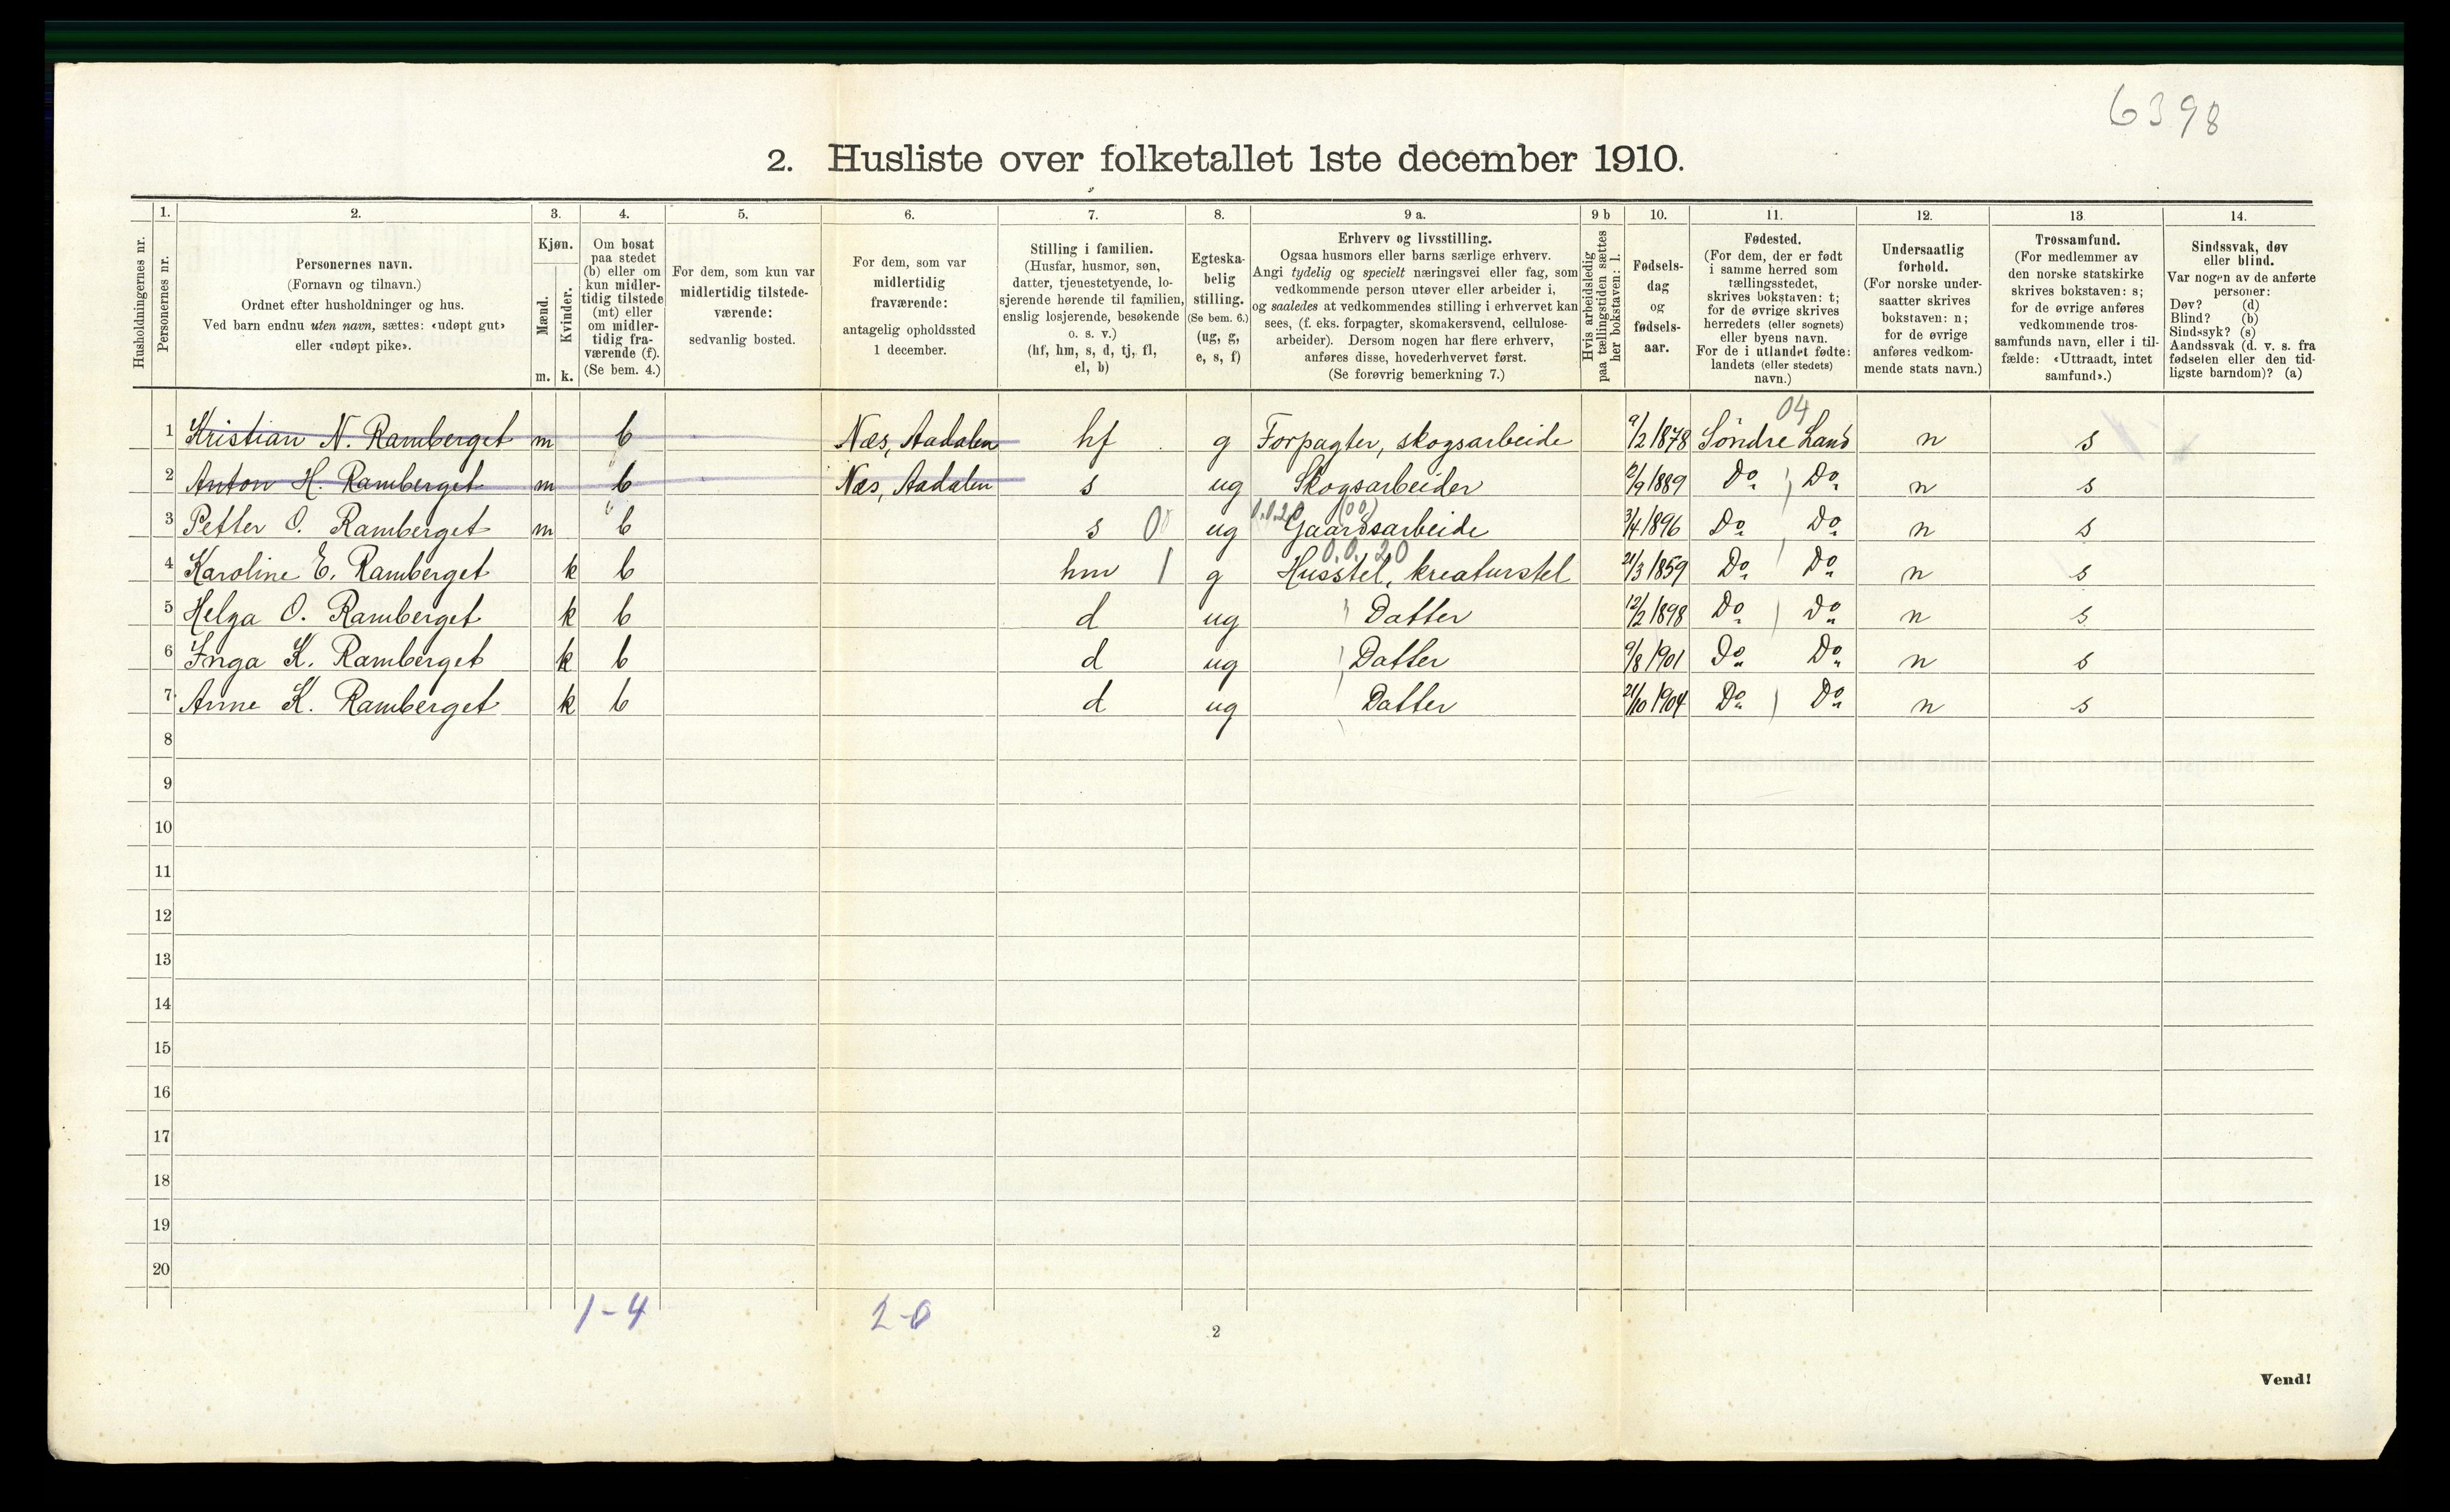 6398
2. Husliste over folketallet 1ste december 1910.
Husholdningernes nr.
1. Personernes nr.
2. Personernes navn.
(Fornavn og tilnavn.)
Ordnet efter husholdninger og hus.
Ved barn endnu uten navn, sættes: «udøpt gut»
eller «udøpt pike».
3. Kjøn.
Mænd. m.
Kvinder. k.
4. Om bosat
paa stedet
(b) eller om
kun midler-
tidig tilstede
(mt) eller
om midler-
tidig fra-
værende (f).
(Se bem. 4.)
5. For dem, som kun var
midlertidig tilstede-
værende:
sedvanlig bosted.
6. For dem, som var
midlertidig
fraværende:
antagelig opholdssted
1 december.
7. Stilling i familien.
(Husfar, husmor, søn,
datter, tjenestetyende, lo-
sjerende hørende til familien,
enslig losjerende, besøkende
o. s. v.)
(hf, hm, s, d, tj, fl,
el, b)
8. Egteska-
belig
stilling.
(Se bem. 6.)
(ug, g,
e, s, f)
9 a. Erhverv og livsstilling.
Ogsaa husmors eller barns særlige erhverv.
Angi tydelig og specielt næringsvei eller fag, som
vedkommende person utøver eller arbeider i,
og saaledes at vedkommendes stilling i erhvervet kan
sees, (f. eks. forpagter, skomakersvend, cellulose-
arbeider). Dersom nogen har flere erhverv,
anføres disse, hovederhvervet først.
(Se forøvrig bemerkning 7.)
9 b Hvis arbeidsledig
paa tællingstiden sættes
her bokstaven: l.
10. Fødsels-
dag
og
fødsels-
aar.
11. Fødested.
(For dem, der er født
i samme herred som
tællingsstedet,
skrives bokstaven: t;
for de øvrige skrives
herredets (eller sognets)
eller byens navn.
For de i utlandet fødte:
landets (eller stedets)
navn.)
12. Undersaatlig
forhold.
(For norske under-
saatter skrives
bokstaven: n;
for de øvrige
anføres vedkom-
mende stats navn.)
13 Trossamfund.
(For medlemmer av
den norske statskirke
skrives bokstaven: s;
for de øvrige anføres
vedkommende tros-
samfunds navn, eller i til-
fælde: «Uttraadt, intet
samfund».)
14. Sindssvak, døv
eller blind.
Var nogen av de anførte
personer:
Døv? (d)
Blind? (b)
Sindssyk? (s)
Aandssvak (d. v. s. fra
fødselen eller den tid-
ligste barndom)? (a)
04
1 Kristian N. Ramberget m b Næs, Aadalen hf g Forpagter, skogsarbeide 9/2 1878 Söndre Land n s
2 Anton H. Ramberget m b Næs, Aadalen s ug Skogsarbeider 12/9 1889 Do Do n s
0.0.20 (00)
3 Petter O. Ramberget m b s 0 ug Gaardsarbeide 3/4 1896 Do Do n s
0.0.20
4 Karoline E. Ramberget k b hm 1 g Husstel, kreaturstel 21/3 1859 Do Do n s
5 Helga O. Ramberget k b d ug Datter 12/2 1898 Do Do n s
6 Inga K. Ramberget k b d ug Datter 9/8 1901 Do Do n s
7 Anne K. Ramberget k b d ug Datter 21/10 1904 Do Do n s
8
9
10
11
12
13
14
15
16
17
18
19
20
1-4 2-0
2
Vend!